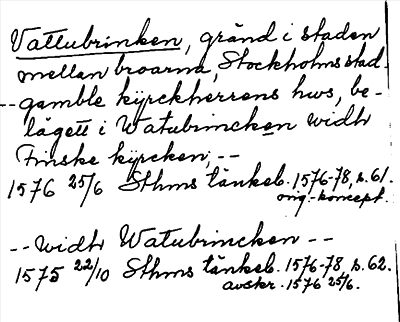 Vattubrinken, gränd i staden
mellan broarna, Stockholms stad.
-- gamble kyrckherrens hws, be-
lägett i Watubrincken widh
Finske kyrcken, --
1576 25/6 Sthms tänkeb. 1576-78, s. 61.
orig.-koncept.
-- widh Watubrincken --
1575 22/10 Sthms tänkeb. 1576-78, s. 62.
avskr. 1576 25/6.